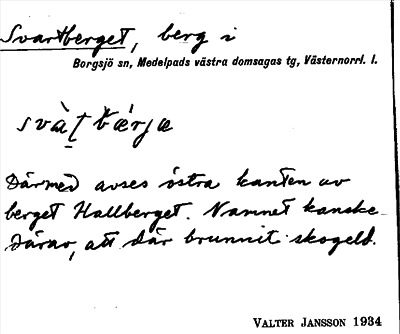 Svartberget, berg i
Borgsjö sn, Medelpads västra domsagas tg, Västernorrl. l.
svàʈbæ̀rjæ
Därmed avses östra kanten av
berget Hallberget. Namnet kanske
därav, att där brunnit skogeld.
VALTER JANSSON 1934